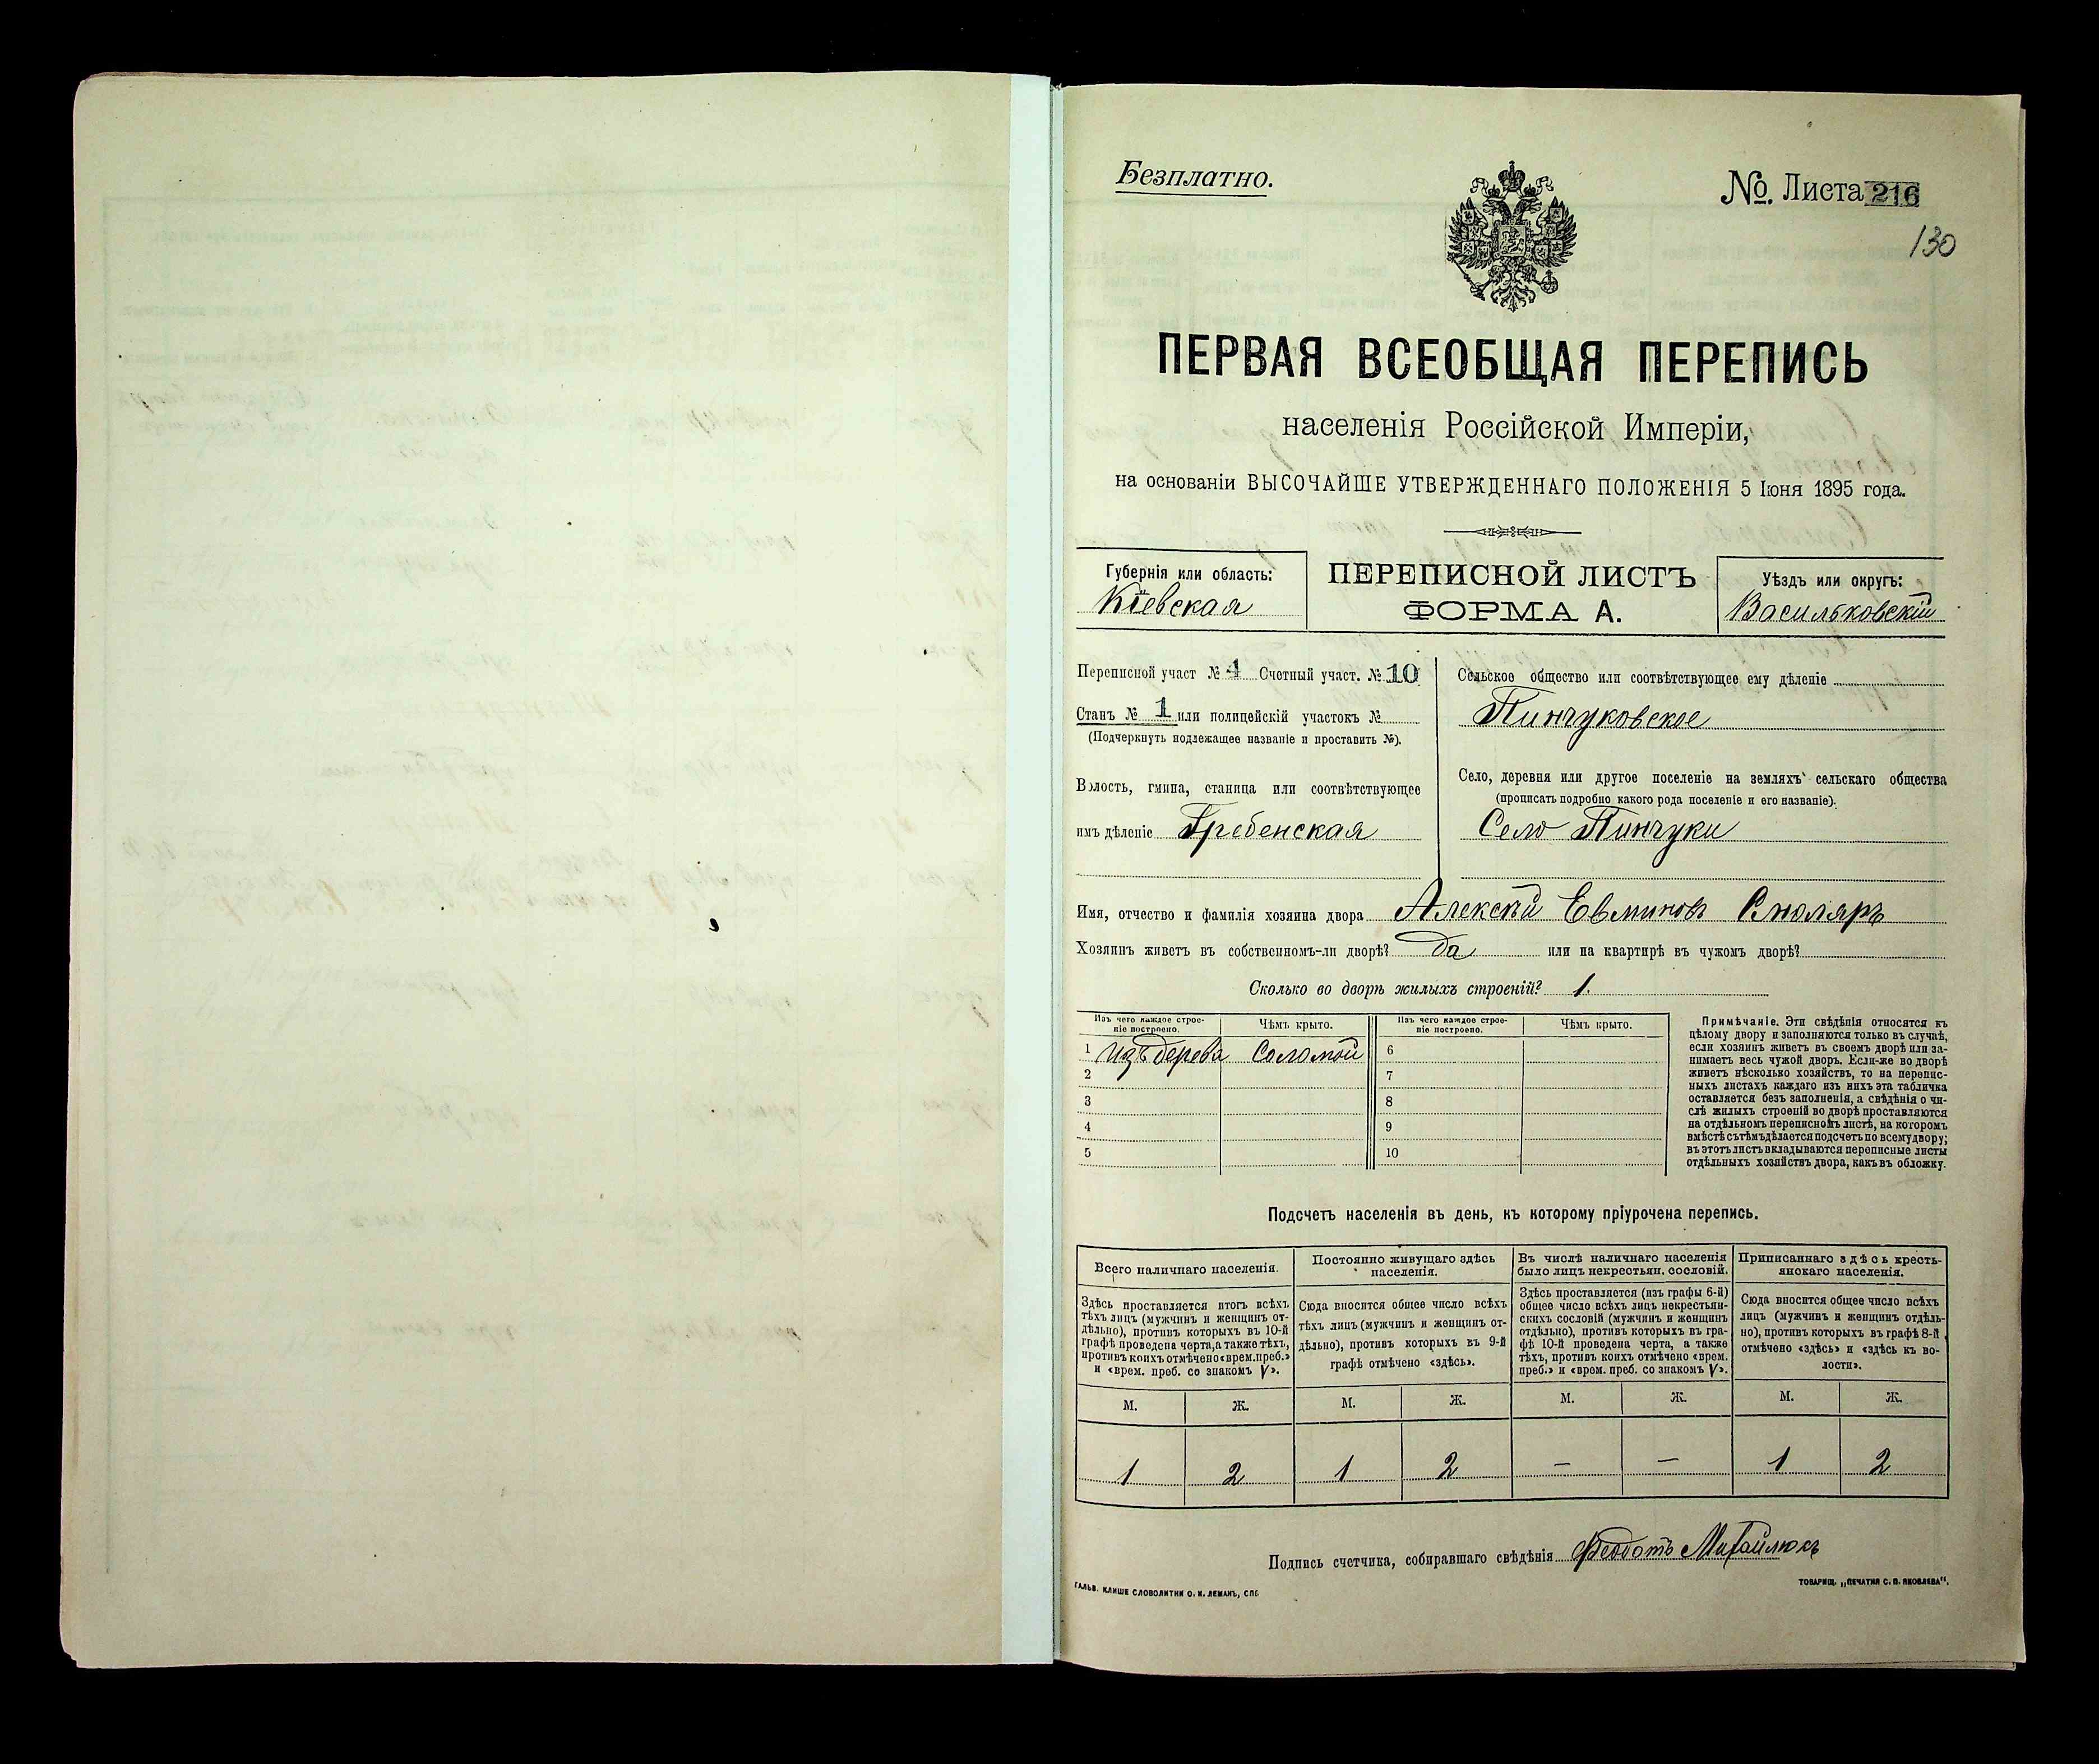 Безплатно.
№. Листа 216
130
ПЕРВАЯ ВСЕОБЩАЯ ПЕРЕПИСЬ
населенія Россійской Имперіи,
на основаніи ВЫСОЧАЙШЕ УТВЕРЖДЕННАГО ПОЛОЖЕНІЯ 5 Іюня 1895 года.
Губернія или область:
Кіевская
ПЕРЕПИСНОЙ ЛИСТЪ
ФОРМА А.
Уѣздъ или округъ:
Васильковскій
Переписной участ № 4 Счетный участ. № 10
Станъ № 1 или полицейскій участокъ №
(Подчеркнуть подлежащее названіе и проставить №).
Волость, гмина, станица или соотвѣтствующее
имъ дѣленіе Гребенская
Сельское общество или соотвѣтствующее ему дѣленіе
Пинчуковское
Село, деревня или другое поселеніе на земляхъ сельскаго общества
(прописать подробно какого рода поселеніе и его названіе).
Село Пинчуки
Имя, отчество и фамилія хозяина двора Алексѣй Евминовъ Столяръ
Хозяинъ живетъ въ собственномъ-ли дворѣ? да или на квартирѣ въ чужомъ дворѣ?
Сколько во дворѣ жилыхъ строеній? 1.
Изъ чего каждое строе-
ніе построено.
Чѣмъ крыто.
Изъ чего каждое строе-
ніе построено.
Чѣмъ крыто.
1 изъ дерева Соломой 6
2 7
3 8
4 9
5 10
Примѣчаніе. Эти свѣдѣнія относятся къ
цѣлому двору и заполняются только въ случаѣ,
если хозяинъ живетъ въ своемъ дворѣ или за-
нимаетъ весь чужой дворъ. Если-же во дворѣ
живетъ нѣсколько хозяйствъ, то на перепис-
ныхъ листахъ каждаго изъ нихъ эта табличка
оставляется безъ заполненія, а свѣдѣнія о чи-
слѣ жилыхъ строеній во дворѣ проставляются
на отдѣльномъ переписномъ листѣ, на которомъ
вмѣстѣ съ тѣмъ дѣлается подсчетъ по всему двору;
въ этотъ листъ вкладываются переписные листы
отдѣльныхъ хозяйствъ двора, какъ въ обложку.
Подсчетъ населенія въ день, къ которому пріурочена перепись.
Всего наличнаго населенія.
Здѣсь проставляется итогъ всѣхъ
тѣхъ лицъ (мужчинъ и женщинъ от-
дѣльно), противъ которыхъ въ 10-й
графѣ проведена черта, а также тѣхъ,
противъ коихъ отмѣчено «врем. преб.»
и «врем. преб. со знакомъ V».
Постоянно живущаго здѣсь
населенія.
Сюда вносится общее число всѣхъ
тѣхъ лицъ (мужчинъ и женщинъ от-
дѣльно), противъ которыхъ въ 9-й
графѣ отмѣчено «здѣсь».
Въ числѣ наличнаго населенія
было лицъ некрестьян. сословій.
Здѣсь проставляется (изъ графы 6-й)
общее число всѣхъ лицъ некрестьян-
скихъ сословій (мужчинъ и женщинъ
отдѣльно), противъ которыхъ въ гра-
фѣ 10-й проведена черта, а также
тѣхъ, противъ коихъ отмѣчено «врем.
преб.» и «врем. преб. со знакомъ V».
Приписаннаго здѣсь кресть-
янскаго населенія.
Сюда вносится общее число всѣхъ
лицъ (мужчинъ и женщинъ отдѣль-
но), противъ которыхъ въ графѣ 8-й
отмѣчено «здѣсь» и «здѣсь къ во-
лости».
М. Ж. М. Ж. М. Ж. М. Ж.
1 2 1 2 — — 1 2
Подпись счетчика, собиравшаго свѣдѣнія Ѳеодотъ Михайлюкъ
ГАЛЬВ. КЛИШЕ СЛОВОЛИТНИ О. И. ЛЕМАНЪ, СПБ
ТОВАРИЩ. „ПЕЧАТНЯ С. П. ЯКОВЛЕВА“.